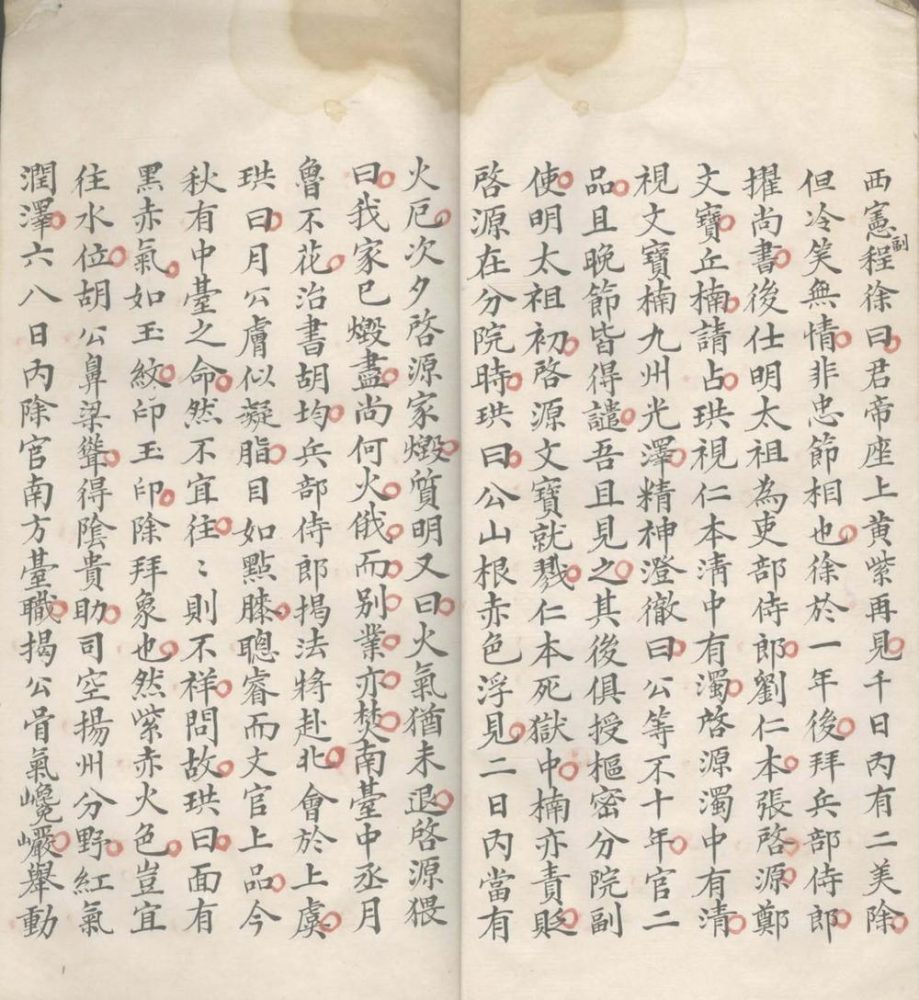 西憲副程徐曰君帝座上黄紫再見千日内有二美除
但冷笑無情非忠節相也徐於一年後拜兵部侍郎
擢尚書後仕明太祖為吏部侍郎劉仁本張啓源鄭
文寶丘楠請占珙視仁本清中有濁啓源濁中有清
視文寶楠九州光澤精神澄徹曰公等不十年官二
品且晚節皆得譴吾且見之其後俱授樞密分院副
使明太祖初啓源文寶就戮仁本死獄中楠亦責貶
啓源在分院時珙曰公山根赤色浮見二日内當有
火厄次夕啓源家燬質明又曰火氣猶未退啓源猥
曰我家已燬盡尚何火俄而别業亦焚南臺中丞月
魯不花治書胡均兵部侍郎揭法將赴北會於上虞
珙曰月公膚似凝脂目如點膝聰睿而文官上品今
秋有中臺之命然不宜往〻則不祥問故珙曰面有
黑赤氣如玉紋印玉印除拜象也然紫赤火色豈宜
往水位胡公鼻梁聳得陰貴助司空揚州分野紅氣
潤澤六八日内除官南方臺職揭公骨氣巉巖舉動